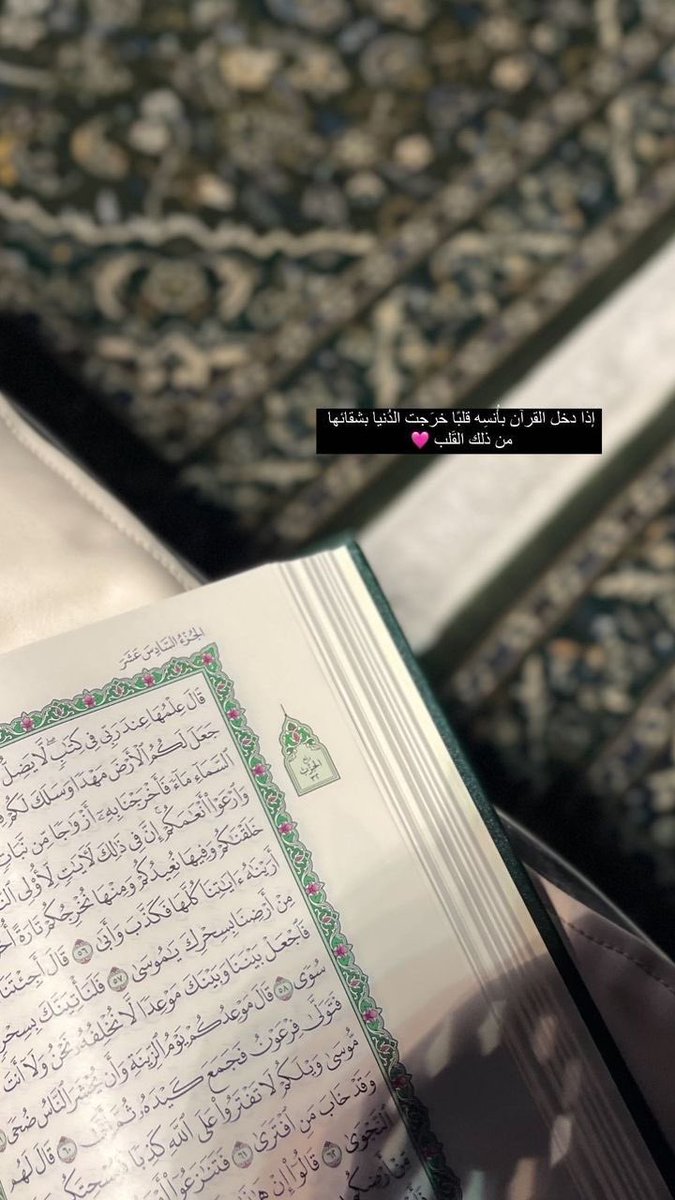 إذا دخل القرآن بأنسِه قلبًا خرَجت الدُنيا بشقائها
من ذلك القَلب 🩷
الجُزْءُ السَّادِسَ عَشَرَ
قَالَ عِلْمُهَا عِندَ رَبِّى فِى كِتَٰبٍۖ لَّا يَضِلُّ
جَعَلَ لَكُمُ ٱلْأَرْضَ مَهْدًا وَسَلَكَ لَكُمْ
ٱلسَّمَآءِ مَآءً فَأَخْرَجْنَا بِهِۦٓ أَزْوَٰجًا مِّن نَّبَاتٍ
وَٱرْعَوْا۟ أَنْعَٰمَكُمْۗ إِنَّ فِى ذَٰلِكَ لَءَايَٰتٍ لِّأُو۟لِى
خَلَقْنَٰكُمْ وَفِيهَا نُعِيدُكُمْ وَمِنْهَا نُخْرِجُكُمْ تَارَةً
أَرَيْنَٰهُ ءَايَٰتِنَا كُلَّهَا فَكَذَّبَ وَأَبَىٰ ٥٦ قَالَ أَجِئْتَنَا
مِنْ أَرْضِنَا بِسِحْرِكَ يَٰمُوسَىٰ ٥٧ فَلَنَأْتِيَنَّكَ بِسِحْرٍ
فَٱجْعَلْ بَيْنَنَا وَبَيْنَكَ مَوْعِدًا لَّا نُخْلِفُهُۥ نَحْنُ وَلَآ أَنتَ
سُوًى ٥٨ قَالَ مَوْعِدُكُمْ يَوْمُ ٱلزِّينَةِ وَأَن يُحْشَرَ ٱلنَّاسُ ضُحًى
فَتَوَلَّىٰ فِرْعَوْنُ فَجَمَعَ كَيْدَهُۥ ثُمَّ أَتَىٰ ٦٠ قَالَ لَهُم
مُّوسَىٰ وَيْلَكُمْ لَا تَفْتَرُوا۟ عَلَى ٱللَّهِ كَذِبًا فَيُسْحِتَكُم
وَقَدْ خَابَ مَنِ ٱفْتَرَىٰ ٦١ فَتَنَٰزَعُوٓا۟
ٱلنَّجْوَىٰ ٦٢ قَالُوٓا۟ إِنْ
مِّنْ أَرْضِكُم